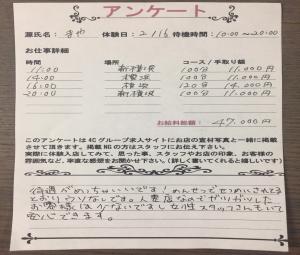 アンケート
源氏名: まや 体験日: 2/16 待機時間: 10:00~20:00
お仕事詳細
時間 場所 コース / 手取り額
11:00 新横浜 100分 11.000円
14:00 横浜 100分 11.000円
16:00 横浜 120分 14.000円
20:00 新横浜 100分 11.000円
お給料総額: 47.000円
このアンケートは4Cグループ求人サイトにお店の宣材写真と一緒に掲載
させて頂きます。掲載NGの方はスタッフにお伝え下さい。
実際に体験入店してみて、思った事、スタッフやお店の印象、お客様の
雰囲気など、率直な感想をお聞かせ下さい。(詳しく書いてくれると嬉しいです)
待遇がめっちゃいいです!めんせつでせつめいされてる
とおり、ウソなしです。人妻店なのでガツガツした
お客様は少ないですし女性スタッフさんもいて
安心できます。